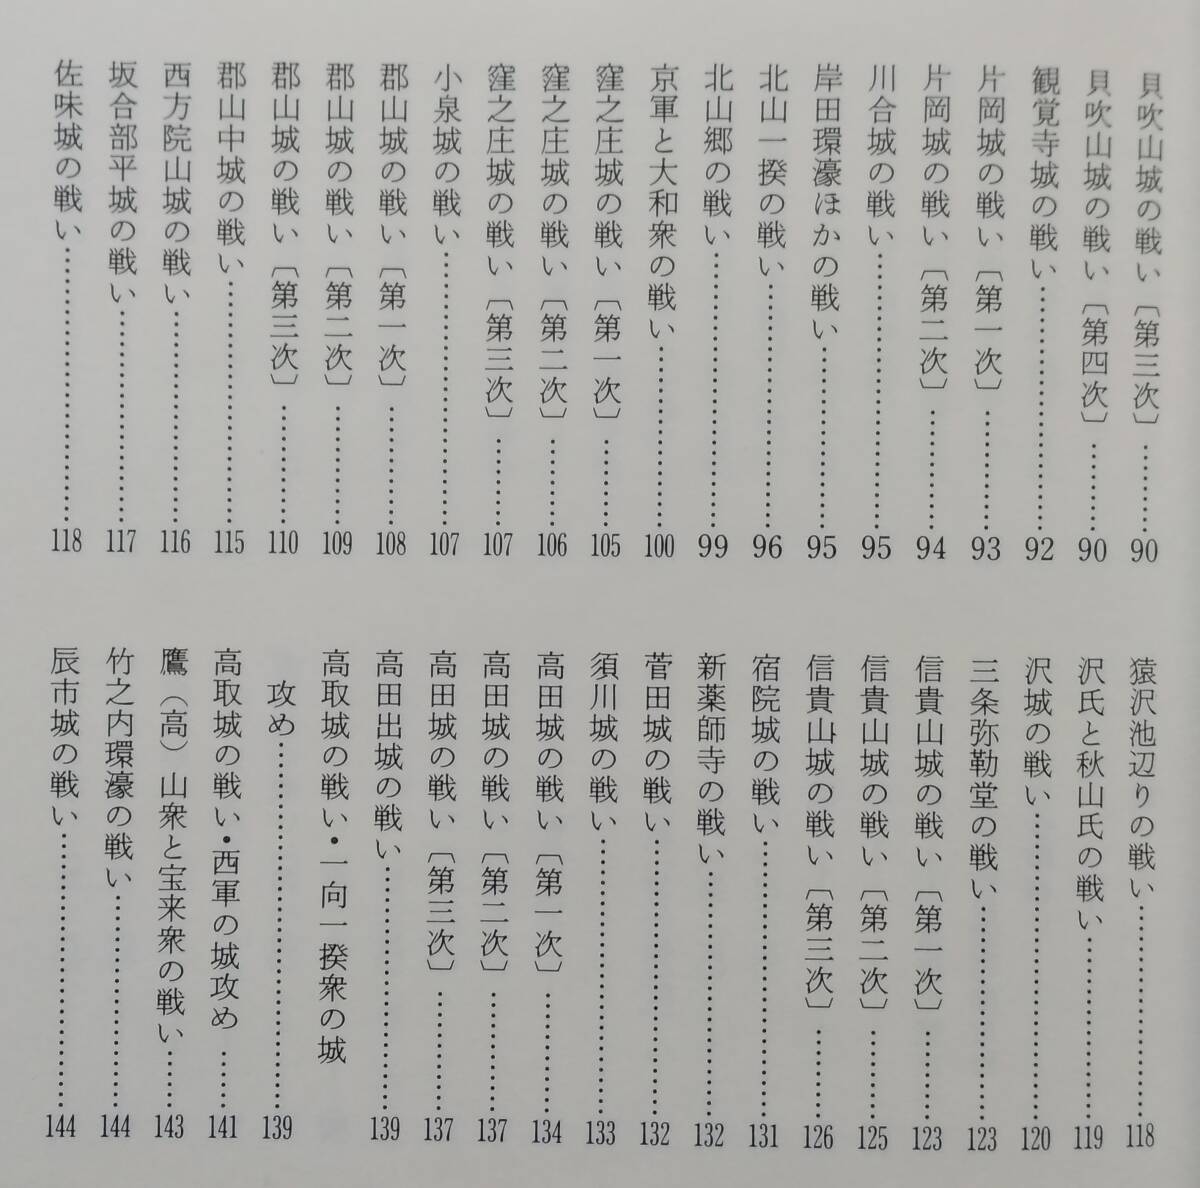 貝吹山城の戦い〔第三次〕………90
貝吹山城の戦い〔第四次〕………90
観覚寺城の戦い………92
片岡城の戦い〔第一次〕………93
片岡城の戦い〔第二次〕………94
川合城の戦い………95
岸田環濠ほかの戦い………95
北山一揆の戦い………96
北山郷の戦い………99
京軍と大和衆の戦い………100
窪之庄城の戦い〔第一次〕………105
窪之庄城の戦い〔第二次〕………106
窪之庄城の戦い〔第三次〕………107
小泉城の戦い………107
郡山城の戦い〔第一次〕………108
郡山城の戦い〔第二次〕………109
郡山城の戦い〔第三次〕………110
郡山中城の戦い………115
西方院山城の戦い………116
坂合部平城の戦い………117
佐味城の戦い………118
猿沢池辺りの戦い………118
沢氏と秋山氏の戦い………119
沢城の戦い………120
三条弥勒堂の戦い………123
信貴山城の戦い〔第一次〕………123
信貴山城の戦い〔第二次〕………125
信貴山城の戦い〔第三次〕………126
宿院城の戦い………131
新薬師寺の戦い………132
菅田城の戦い………132
須川城の戦い………133
高田城の戦い〔第一次〕………134
高田城の戦い〔第二次〕………137
高田城の戦い〔第三次〕………137
高田出城の戦い………139
高取城の戦い・一向一揆衆の城
攻め………139
高取城の戦い・西軍の城攻め………141
鷹（高）山衆と宝来衆の戦い………143
竹之内環濠の戦い………144
辰市城の戦い………144